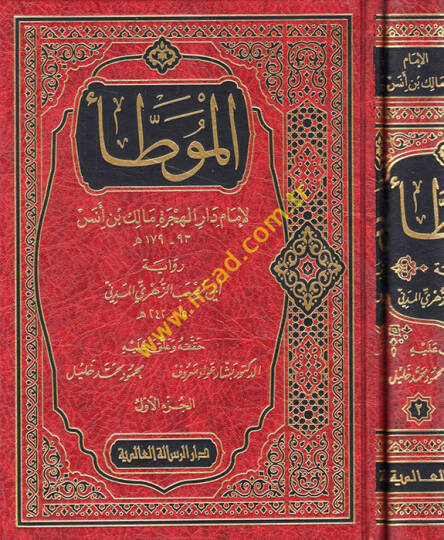 الموطأ
لإمام دار الهجرة مالك بن أنس
٩٣ - ١٧٩ هـ
رواية
أبي مصعب الزهري المدني
٢٤٢ هـ
حققه وعلق عليه
الدكتور بشار عواد معروف محمود محمد خليل
الجزء الأول
دار الرسالة العالمية
www.irsad.com.tr
الإمام
مالك بن أنس
الزهري المدني
عليه
محمود محمد خليل
٢
العالمية